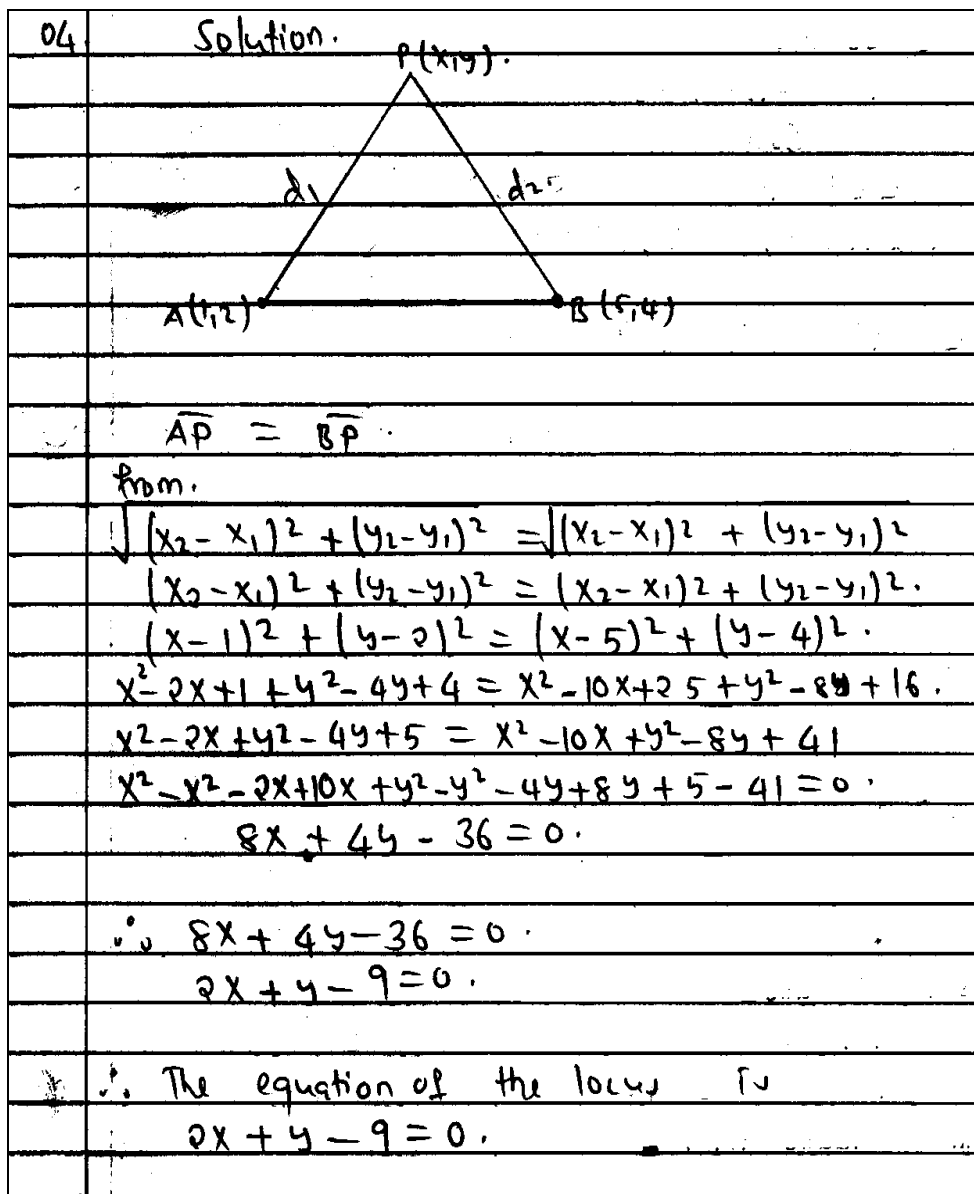 04. Solution.
P(x,y).
d1 d2.
A(1,2) B(5,4)
AP̅ = BP̅.
from.
√(x₂-x₁)² + (y₂-y₁)² = √(x₂-x₁)² + (y₂-y₁)²
(x₂-x₁)² + (y₂-y₁)² = (x₂-x₁)² + (y₂-y₁)².
(x-1)² + (y-2)² = (x-5)² + (y-4)².
x²-2x+1+y²-4y+4 = x²-10x+25+y²-8y+16.
x²-2x+y²-4y+5 = x²-10x+y²-8y+41
x²-x²-2x+10x+y²-y²-4y+8y+5-41=0.
8x+4y-36=0.
∴ 8x+4y-36=0.
2x+y-9=0.
∴ The equation of the locus is
2x+y-9=0.